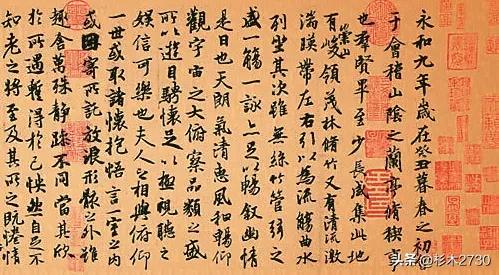 永和九年歲在癸丑暮春之初
于會稽山陰之蘭亭脩稧事
也群賢畢至少長咸集此地
有崇山峻領茂林脩竹又有清流激
湍暎帶左右引以為流觴曲水
列坐其次雖無絲竹管弦之
盛一觴一詠亦足以暢敘幽情
是日也天朗氣清惠風和暢仰
觀宇宙之大俯察品類之盛
所以遊目騁懷足以極視聽之
娛信可樂也夫人之相與俯仰
一世或取諸懷抱悟言一室之內
或因寄所託放浪形骸之外雖
趣舍萬殊靜躁不同當其欣
於所遇暫得於己怏然自足不
知老之將至及其所之既惓情
头条 @杉木2730